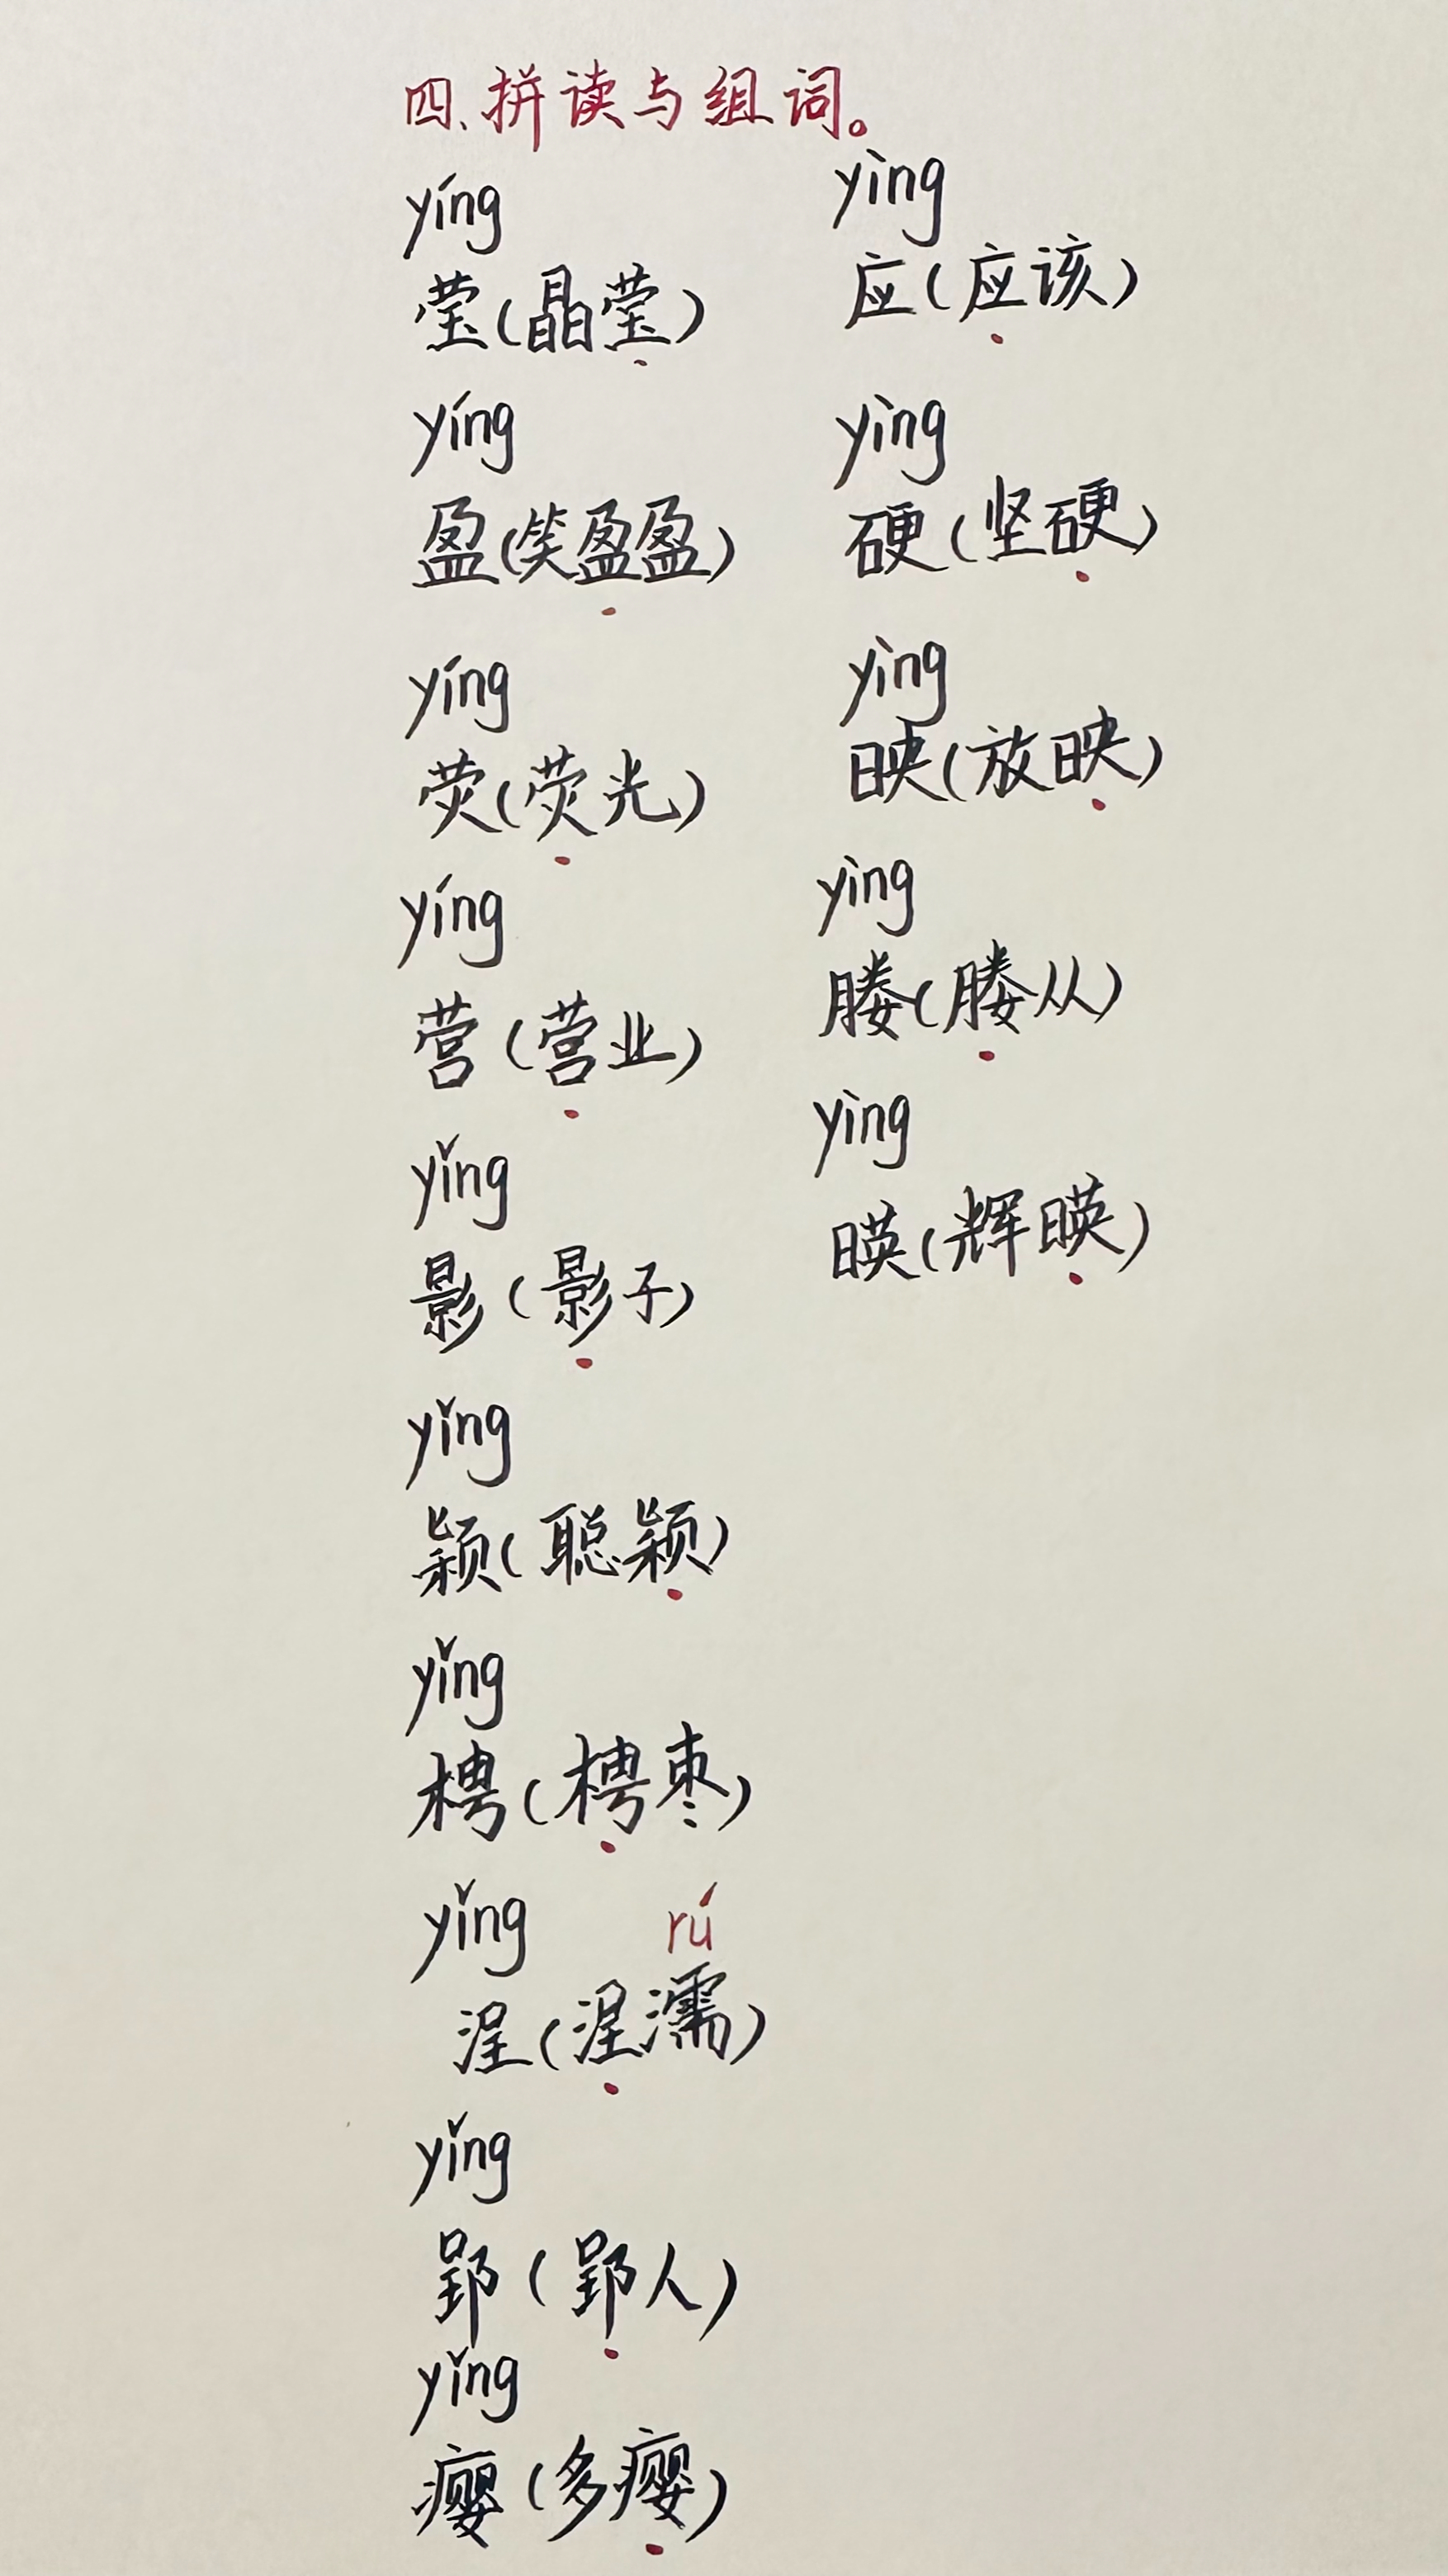 四、拼读与组词。
yíng
莹(晶莹)
yíng
盈(笑盈盈)
yíng
荧(荧光)
yíng
营(营业)
yǐng
影(影子)
yǐng
颖(聪颖)
yǐng
梬(梬枣)
yǐng rú
浧(浧濡)
yǐng
郢(郢人)
yǐng
瘿(多瘿)
yìng
应(应该)
yìng
硬(坚硬)
yìng
映(放映)
yìng
媵(媵从)
yìng
暎(辉暎)